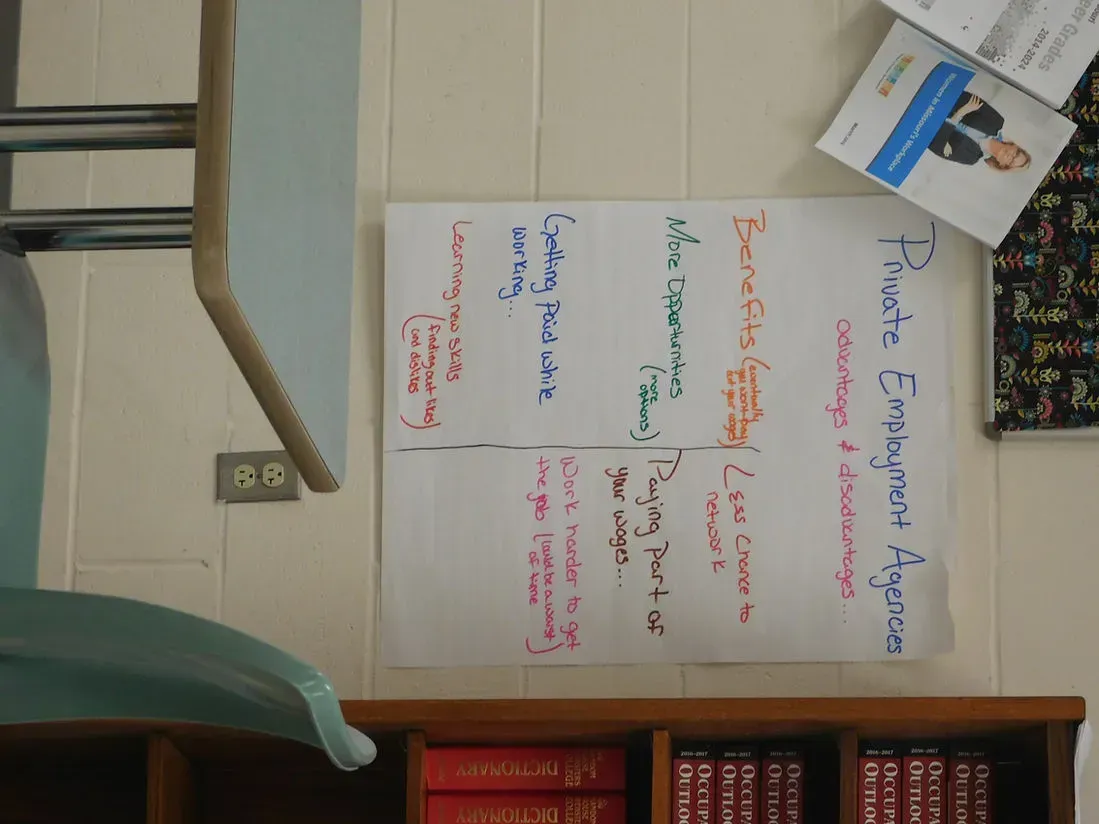 Private Employment Agencies
advantages & disadvantages...
Benefits (eventually
you won't pay
out your wages)
More Opportunities
(more
options)
Getting Paid while
working...
Learning new skills
(finding out likes)
and dislikes
Less chance to
network
Paying Part of
your wages...
Work harder to get
the job (could be a waist)
of time
Women in Missouri's Workplace
Grades
2014-2024
DICTIONARY
DICTIONARY
2016-2017
OCCUPA
OUTLO
2016-2017
OCCUPA
OUTLO
2016-2017
OCCUPA
OUTLO
2016-2017
OCCUPA
OUTLO
2016-2017
OCCUPA
OUTLO
2016-2017
OCCUPA
OUTLO